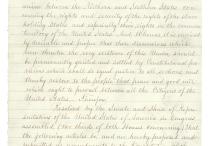 sions between the Northern and Southern States con-
cerning the rights and security of the rights of the slave
holding States and especially their rights in the common
territory of the United States And Whereas it is eminent
ly desirable and proper that these dissensions which
now threaten the very existence of this Union should
be permanently quieted and settled by Constitutional pro
visions which shall do equal justice to all sections and
thereby restore to the people that peace and good will
which ought to prevail between all the Citizens of the
United States Therefore
Resolved by the Senate and House of Repre
sentatives of the United States of America in Congress
assembled (two thirds of both Houses concurring) that
the following articles be and are hereby proposed and